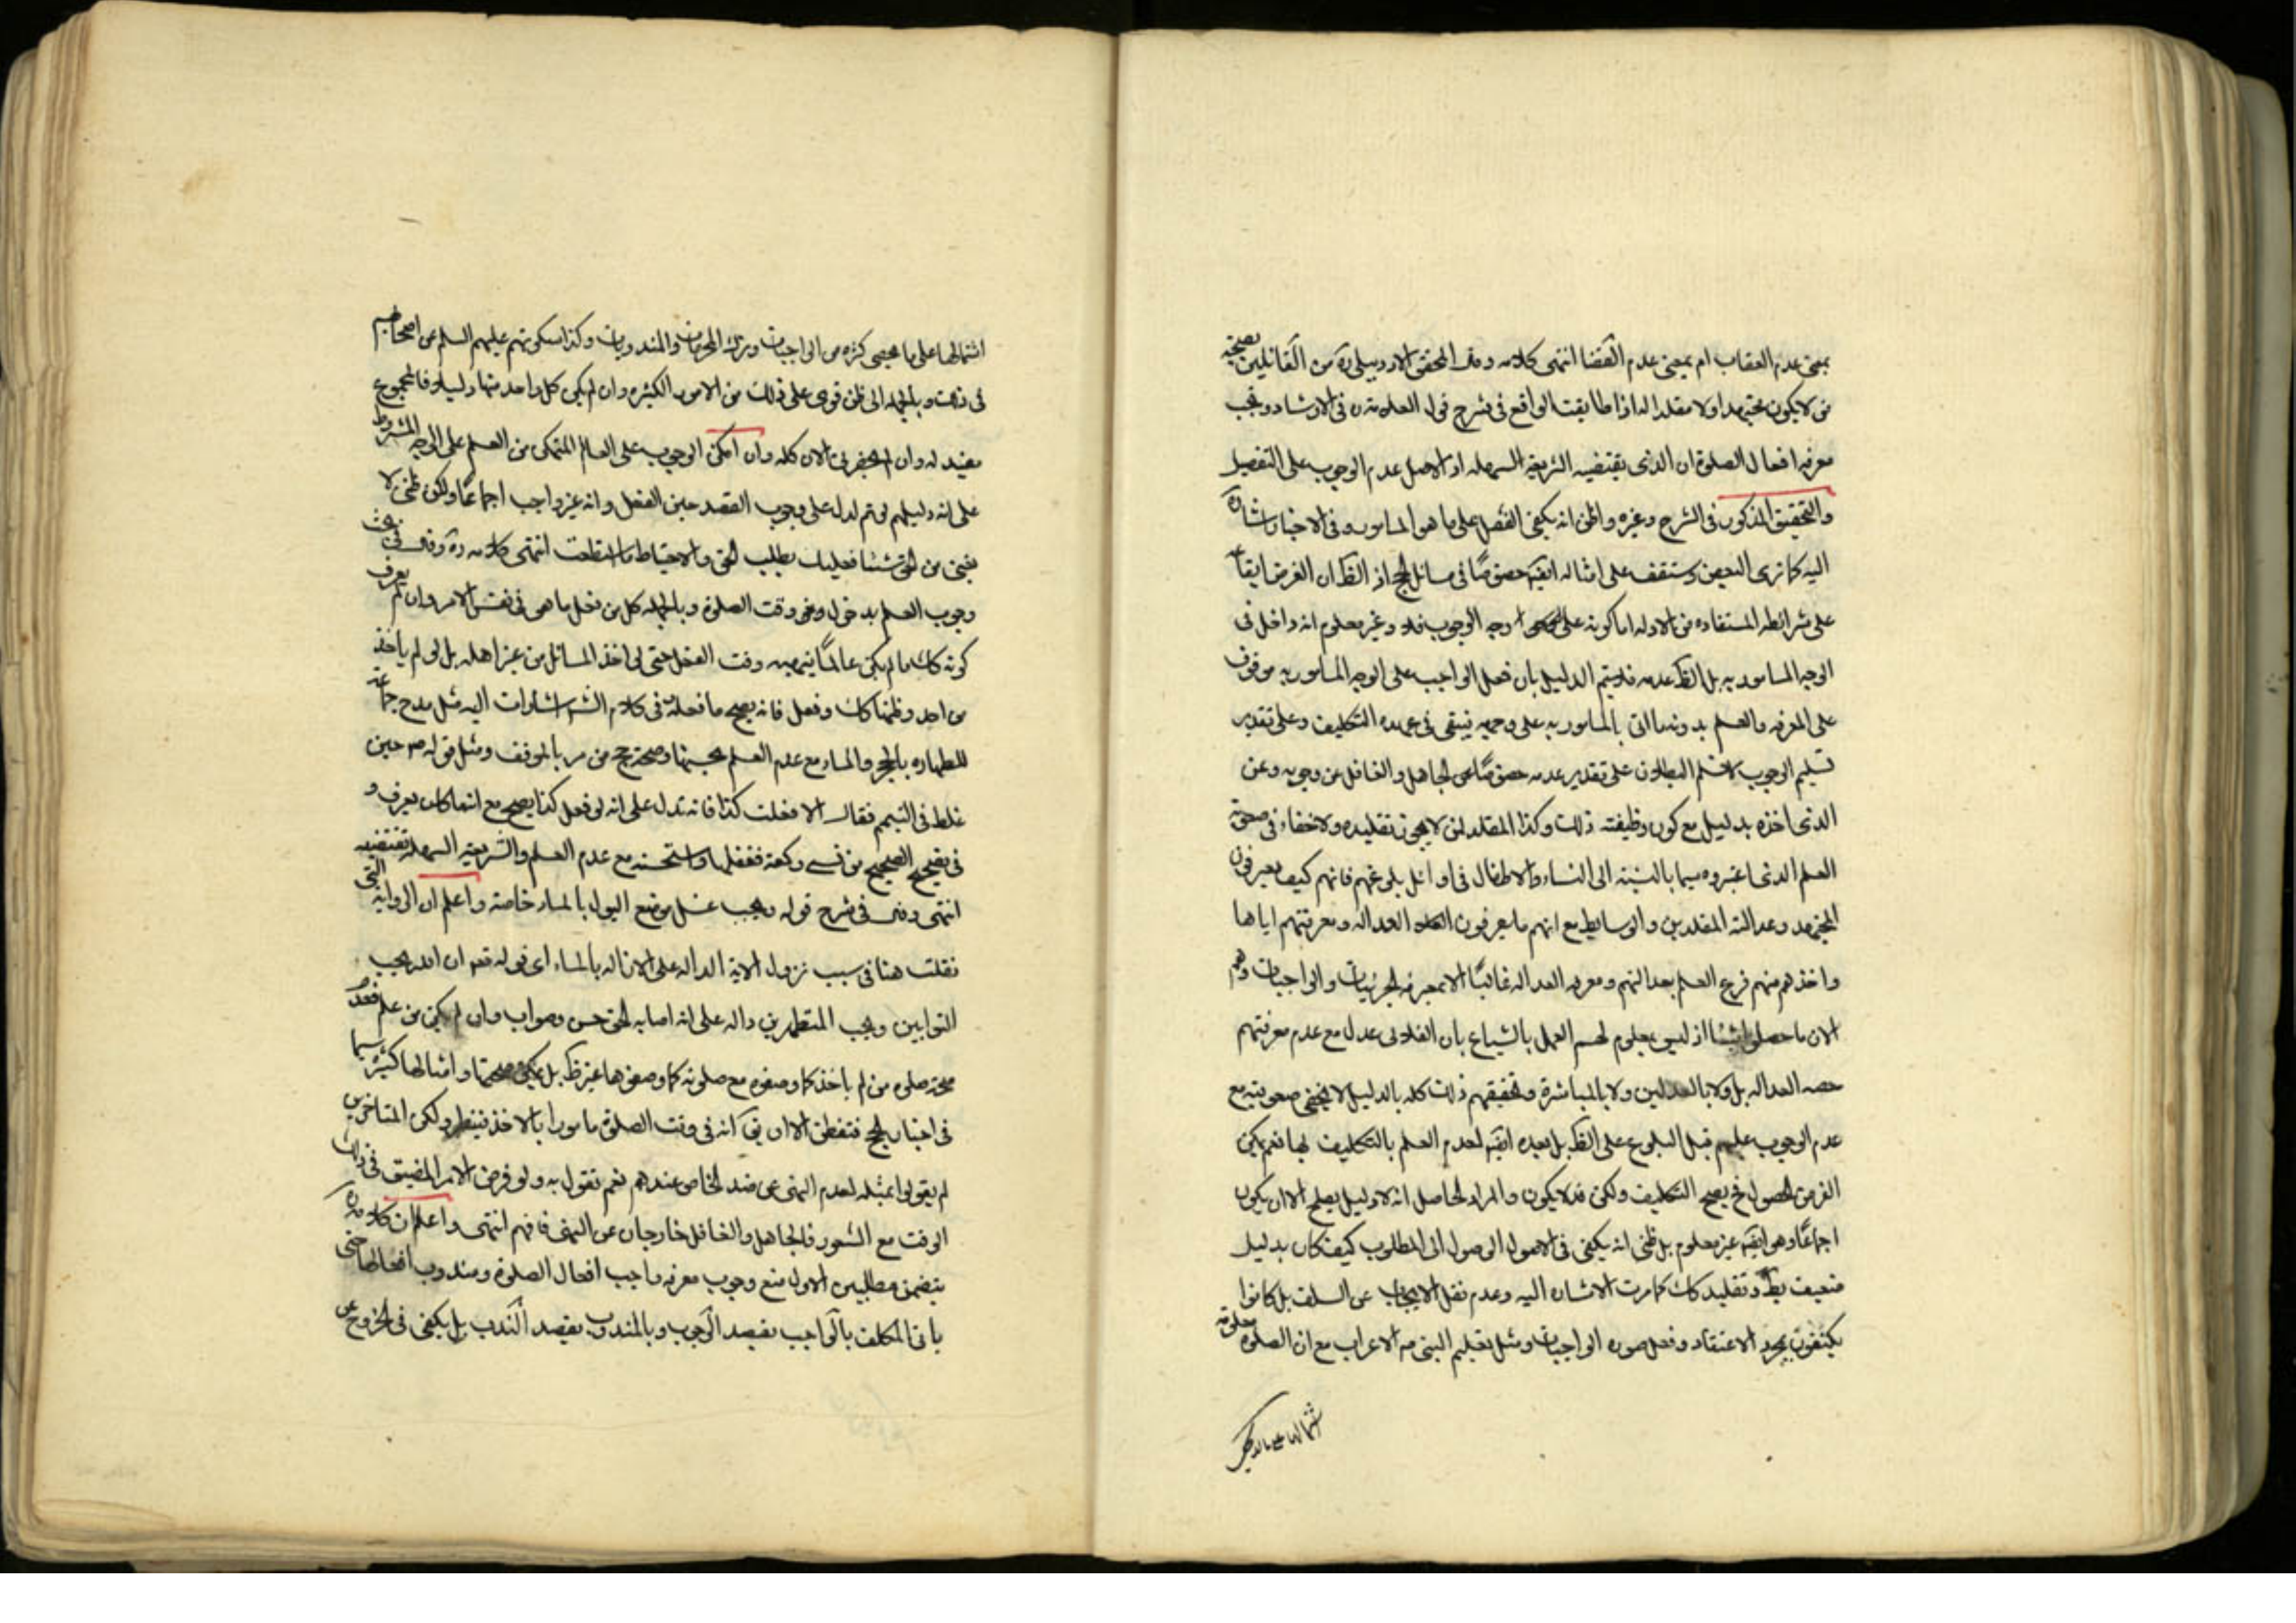 بمعنى عدم العقاب ام بمعنى عدم القضا انتهى كلامه وقال المحقق الاردبيلى ره من القائلين بصحة
من لا يكون مجتهدا ولا مقلدا اذا طابقت الواقع فى شرح قول العلامة ره فى الارشاد ويجب
معرفة افعال الصلوة ان الذى يقتضيه الشريعة السهله اذ الاصل عدم الوجوب على التفصيل
والتحقيق المذكور فى الشرح وغيره واظن انه يكفى الفعل على ما هو المأمور وفى الاخبار اشارة
اليه كما ترى البعض وستقف على امثاله ايضا خصوصا فى مسائل الحج اذ الظ ان الغرض ايقاعه
على شرائطه المستفاده من الادله اما كونه على وجه الوجوب فلا وغير معلوم انه داخل فى
الوجه المأمور به بل الظ عدمه فلا يتم الدليل بان فعل الواجب على الوجه المأمور به موقوف
على المعرفه والعلم بدونه ما اتى بالمأمور به على وجهه فيبقى فى عهدة التكليف وعلى تقدير
تسليم الوجوب لا نسلم البطلان على تقدير عدمه خصوصا عن الجاهل والغافل عن وجوبه وعن
الذى اخذه بدليل مع كون وظيفته ذلك وكذا المقلد لمن لا يجوز تقليده ولا خفاء فى صعوبة
العلم الذى اعتبروه سيما بالنسبة الى النساء والاطفال فى اوائل بلوغهم فانهم كيف يعرفون
المجتهد وعدالته وعدالة المقلدين والوسايط مع انهم ما يعرفون العدالة ومعرفتهم اياها
واخذهم منهم فرع العلم بعدالتهم ومعرفة العدالة غالبا لا بمعرفة المحرمات والواجبات وهم
الان ما حصلوا شيئا اذ ليس بمعلوم لهم العمل بالشياع بان الفلانى عدل مع عدم معرفتهم
حصه العداله بل ولا بالعدلين ولا بالمباشرة وتحقيقهم ذلك كله بالدليل لا يخفى صعوبته مع
عدم الوجوب عليهم قبل البلوغ على الظ بل بعده ايضا لعدم العلم بالتكليف بها نعم يمكن
الفرض الحصول فح يصح التكليف ولكن قد لا يكون والمراد الحاصل انه لا دليل يصلح الا ان يكون
اجماعا وهو ايضا غير معلوم بل ظنى انه يكفى فى الاصول الوصول الى المطلوب كيف كان بدليل
ضعيف باطل وتقليد كذلك كما مرت الاشارة اليه وعدم نقل الايجاب عن السلف بل كانوا
يكتفون بمجرد الاعتقاد وفعل صورة الواجبات ومثل تعليم النبى ص الاعراب مع ان الصلوة معلومة
اشتمالها على ما
اشتمالها على ما يحصى كثره من الواجبات وترك المحرمات والمندوبات وكذا سكوتهم عليهم السلم عن اصحابهم
فى ذلك وبالجمله الى ظن قوى على ذلك من الامور الكثيرة وان لم يكن كل واحد منها دليلا فالمجموع
مفيد له وان لم يحضرنى الان كله وان امكن الوجوب على العالم المتمكن من العلم على الوجه المشروط
على انه دليلهم لو تم لدل على وجوب القصد حين الفعل وانه غير واجب اجماعا ولكن ظنى لا
يغنى من الحق شيئا فعليك بطلب الحق والاحتياط ما استطعت انتهى كلامه ره وقال فى بحث
وجوب العلم بدخول وقت الصلوة وبالجمله كل من فعل ما هو فى نفس الامر وان لم يعرف
كونه كذلك ما لم يكن عالما بنهيه وقت الفعل حتى لو اخذ المسائل من غير اهله بل لو لم ياخذ
من احد وظنها كذلك وفعل فانه يصح ما فعله وفى كلام الشر اشارات اليه مثل مدح جماعة
للطهاره بالحجر والماء مع عدم العلم بحسنها وصحة حج من مر بالموقف ومثل قوله ص حين
غلط فى التيمم فقال الا فعلت كذا فانه يدل على انه لو فعل كذا يصح مع انه ما كان يعرف و
فى تصحيح الصحيح من نسى ركعة ففعلها واستحسنه مع عدم العلم والشريعة السهلة تقتضيه
انتهى وقال فى شرح قوله ويجب غسل موضع البول بالماء خاصة واعلم ان الرواية التى
نقلت هنا فى سبب نزول الاية الدالة على الازاله بالماء اى قوله تعالى ان الله يحب
التوابين ويحب المتطهرين دالة على ان اصابة الحق حسن وصواب وان لم يكن من علم فعدم
صحة صلوة من لم ياخذ كما وصفوه مع صلوته كما وصفوها غير ظ بل يمكن صحتها وامثالها كثيرة سيما
فى اخبار الحج فتفطن الا ان يق انه فى وقت الصلوة مأمورا بالاخذ فتبطل ولكن المتاخرين
لم يقولوا بمثله لعدم النهى عن ضد الخاص عندهم نعم نقول به ولو فرض الامر المضيق فى ذلك
الوقت مع الشعور فالجاهل والغافل خارجان عن النهى فافهم انتهى واعلم ان كلامه ره
يتضمن مطلبين الاول منع وجوب معرفة واجب افعال الصلوة ومندوب افعالها حتى
ياتى المكلف بالواجب بقصد الوجوب وبالمندوب بقصد الندب بل يكفى فى الخروج عن